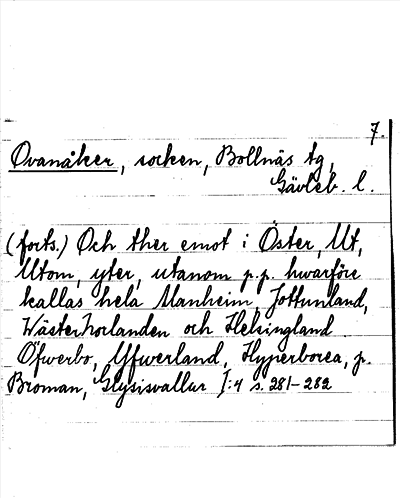 7.
Ovanåker, socken, Bollnäs tg,
Gävleb. l.
(forts.) Och ther emot i Öster, Ut,
Utom, yter, utanom p.p. hwarföre
kallas hela Manheim, Jottunland,
Wästerhorlanden och Helsingland
Öfwerbo, Yffwerland, Hyperborea, p.
Broman, Glysisvallur I:4 s. 281-282